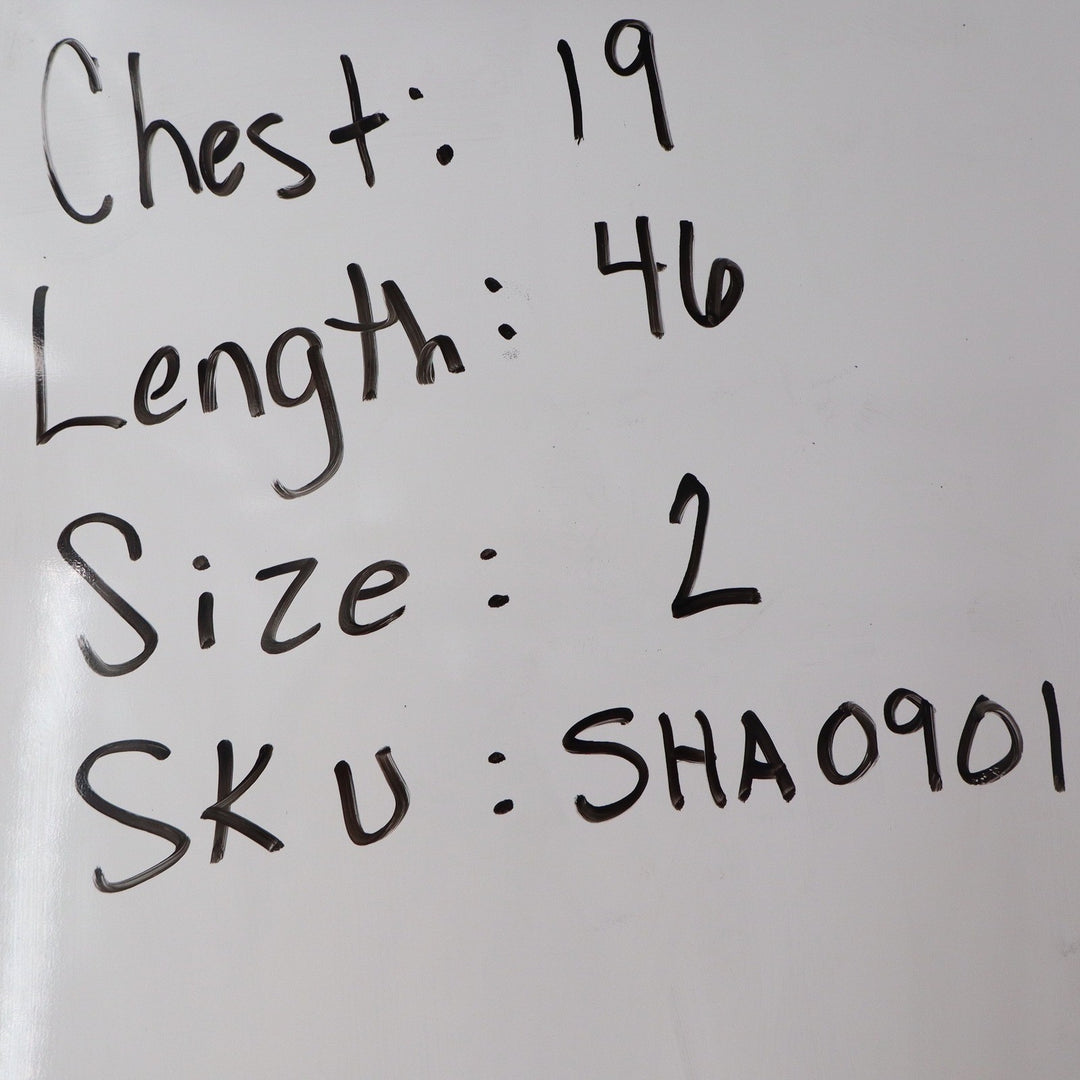 Chest: 19
Length: 46
Size: 2
SKU: SHA0901